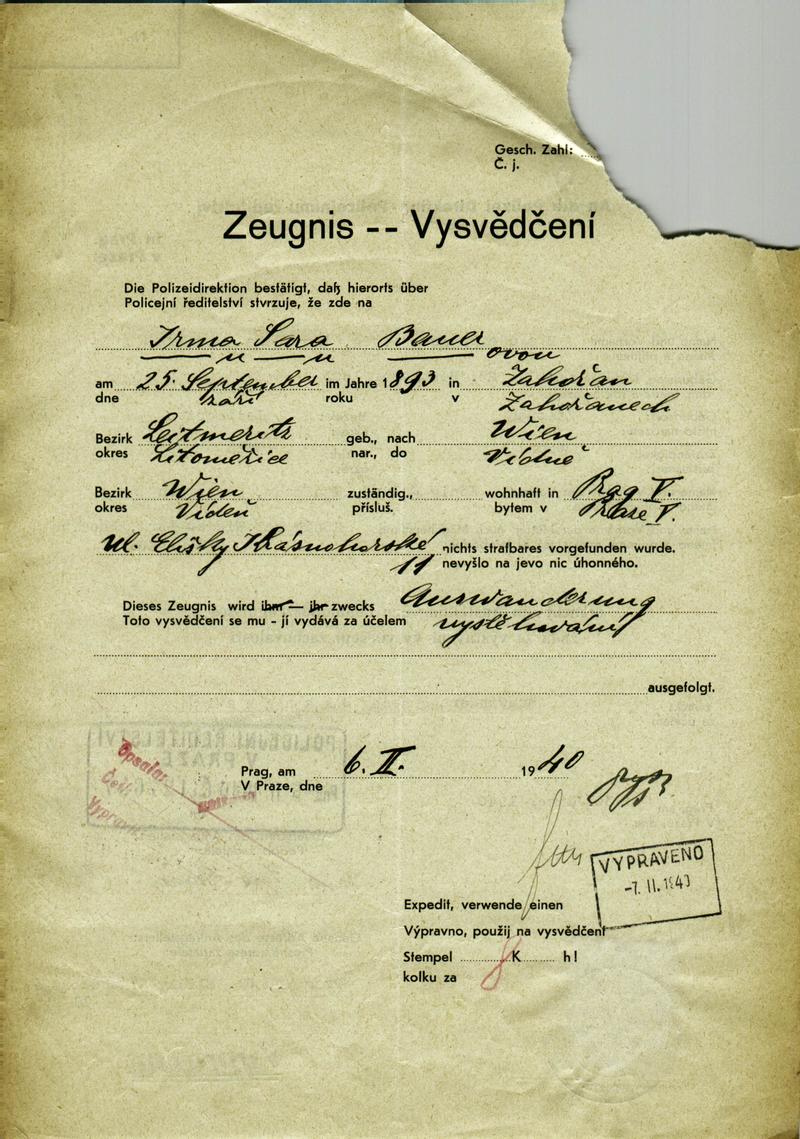 Gesch. Zahl:
Č. j.
Zeugnis -- Vysvědčení
Die Polizeidirektion bestätigt, daß hierorts über
Policejní ředitelství stvrzuje, že zde na
Irma Sara Bauer
ovou
am 25. September im Jahre 1893 in Zahořan
dne září roku v Zahořanech
Bezirk Leitmeritz geb., nach Wien
okres Litoměřice nar., do Vídně
Bezirk Wien zuständig., wohnhaft in Prag V.
okres Vídeň přísluš. bytem v Praze V.
ul. Elišky Krásnohorské nichts strafbares vorgefunden wurde.
11 nevyšlo na jevo nic úhonného.
Dieses Zeugnis wird ihm — ihr zwecks Auswanderung
Toto vysvědčení se mu - jí vydává za účelem vystěhování
ausgefolgt.
Prag, am 6. II. 1940
V Praze, dne
VYPRAVENO
-7. II. 1940
Expedit, verwende einen
Výpravno, použij na vysvědčení
Stempel K h!
kolku za